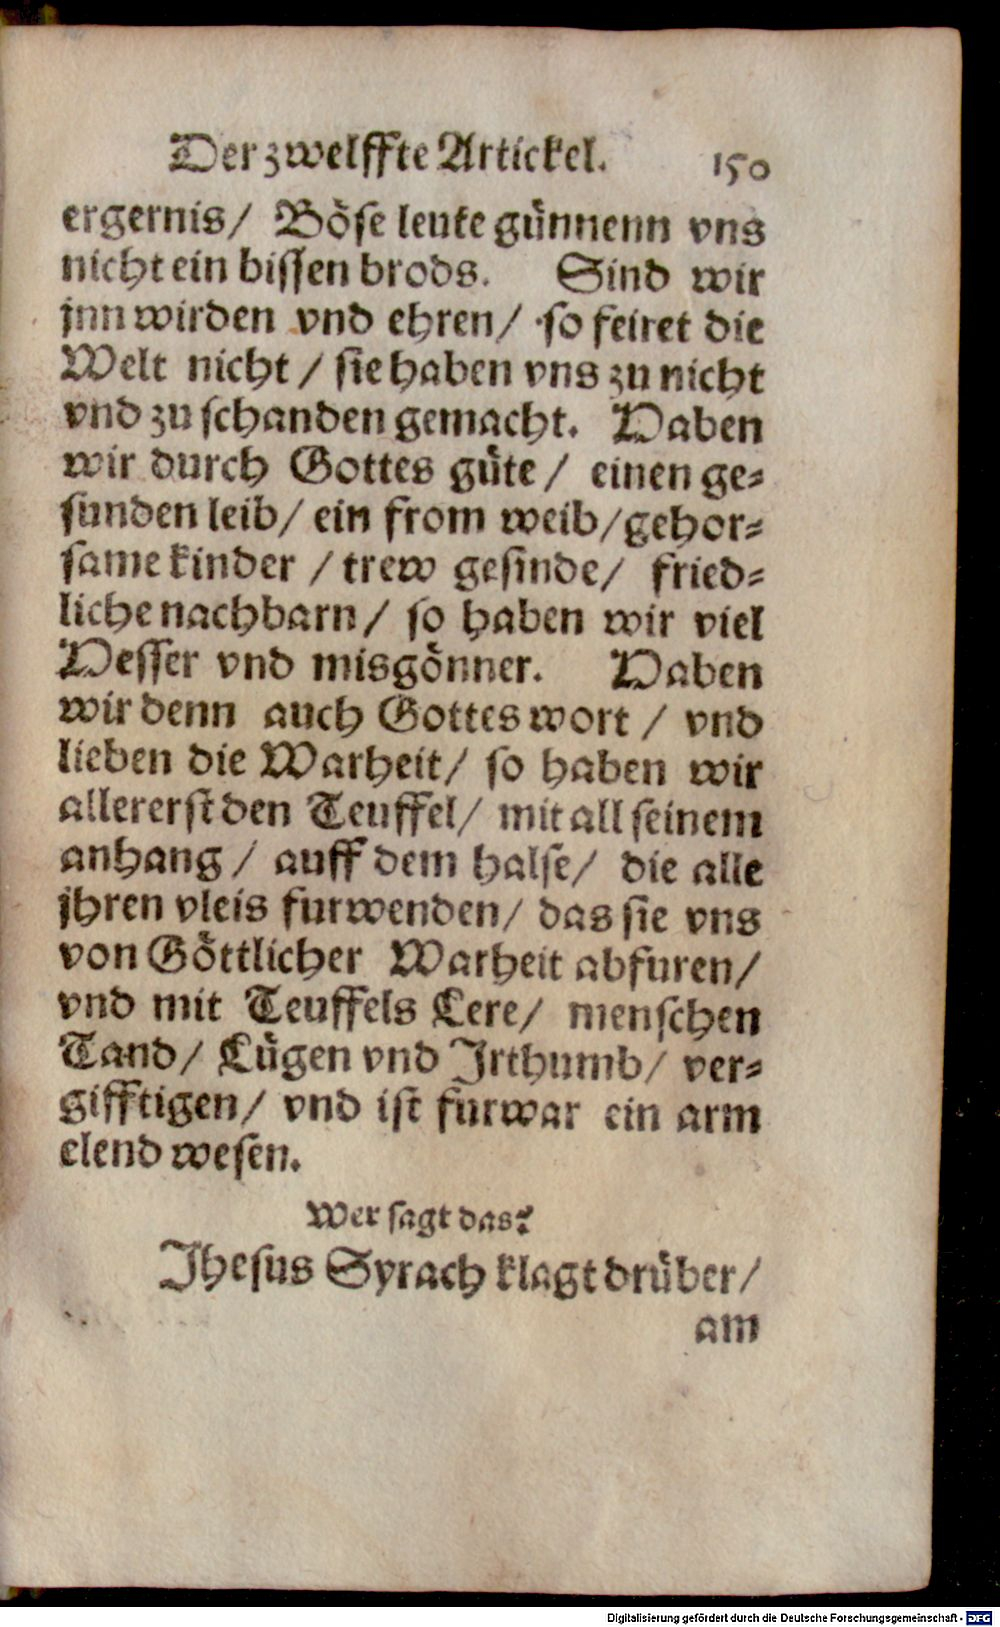 Der zwelffte Artickel. 150
ergernis/ Böse leute günnenn vns
nicht ein bissen brods. Sind wir
jnn wirden vnd ehren/ so feiret die
Welt nicht / sie haben vns zu nicht
vnd zu schanden gemacht. Haben
wir durch Gottes güte / einen ge-
sunden leib/ ein from weib/ gehor-
same kinder / trew gesinde/ fried-
liche nachbarn/ so haben wir viel
Hesser vnd misgönner. Haben
wir denn auch Gottes wort / vnd
lieben die Warheit/ so haben wir
allererst den Teuffel/ mit all seinem
anhang / auff dem halse/ die alle
jhren vleis furwenden/ das sie vns
von Göttlicher Warheit abfuren/
vnd mit Teuffels Lere/ menschen
Tand/ Lügen vnd Irthumb/ ver-
gifftigen/ vnd ist furwar ein arm
elend wesen.
Wer sagt das?
Jhesus Syrach klagt drüber/
am
Digitalisierung gefördert durch die Deutsche Forschungsgemeinschaft - DFG